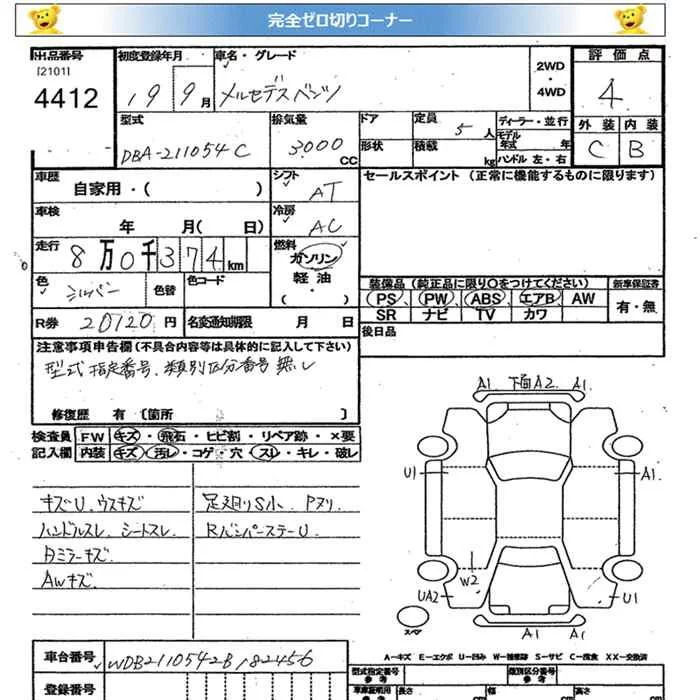 完全ゼロ切りコーナー
出品番号 初度登録年月 車名・グレード 2WD・4WD 評価点
[2101]
4412 19 9月 メルセデスベンツ 4
型式 排気量 ドア 定員 5人 ディーラー・並行 外装 内装
モデル年式 年
DBA-211054C 3000cc 形状 積載 kg ハンドル 左・右 C B
車歴 自家用・( ) シフト AT セールスポイント (正常に機能するものに限ります)
車検 年 月( 日) 冷房 AC
走行 8万0千374km 燃料 ガソリン
軽油・( )
色 シルバー 色替 色コード 装備品(純正品に限り○をつけてください) 新車保証書
PS PW ABS エアB AW 有・無
SR ナビ TV カワ
R券 20120円 名変通知期限 月 日 後日品
注意事項申告欄(不具合内容等は具体的に記入して下さい)
型式指定番号、類別区分番号 無し
修復歴 有 [箇所 ]
検査員 FW キズ・飛石・ヒビ割・リペア跡・×要
記入欄 内装 キズ・汚レ・コゲ・穴・スレ・キレ・破レ
キズU、ウスキズ 足廻りS小、Pヌリ
ハンドルスレ、シートスレ RバンパーステーU
ミラーキズ
AWキズ
A1 下面A2 A1
U1 A1
W2
UA2 U1
スペア A1 A1
A-キズ E-エクボ U-凹み S-サビ C-腐食 XX-交換済
車台番号 WDB2110542B182456 型式指定番号 類別区分番号
参考 参考
登録番号 車庫証明用 長さ 幅 高さ